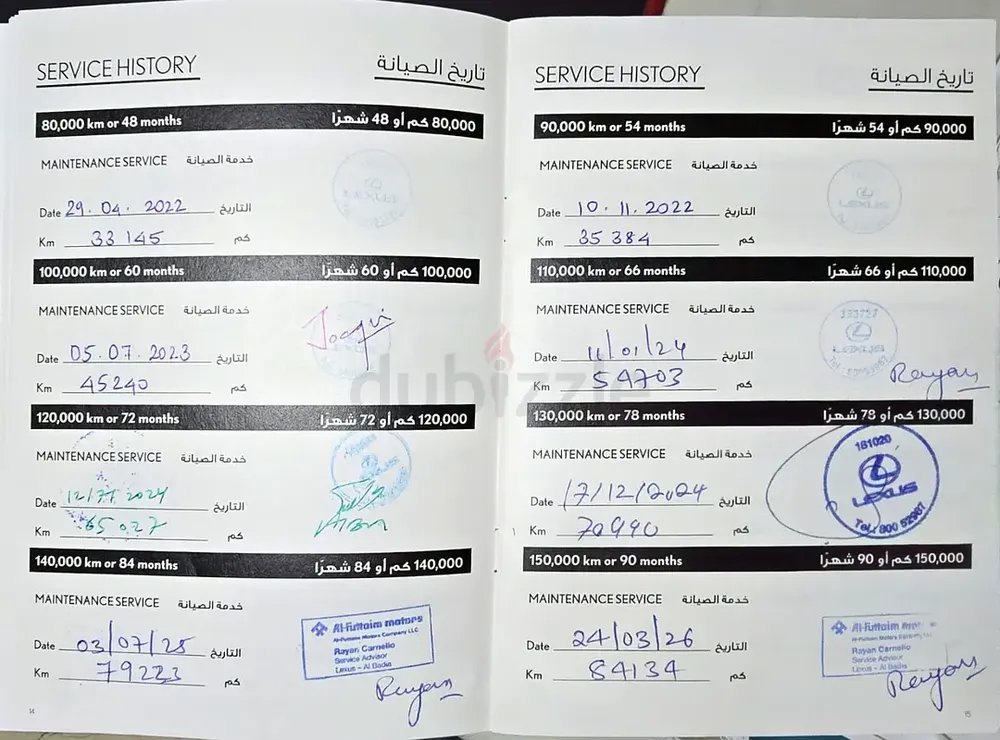 SERVICE HISTORY تاريخ الصيانة
80,000 km or 48 months 80,000 كم أو 48 شهرًا
MAINTENANCE SERVICE خدمة الصيانة
LEXUS
Date 29.04.2022 التاريخ
Km 33145 كم
100,000 km or 60 months 100,000 كم أو 60 شهرًا
MAINTENANCE SERVICE خدمة الصيانة
Date 05.07.2023 التاريخ
Km 45240 كم
120,000 km or 72 months 120,000 كم أو 72 شهرًا
MAINTENANCE SERVICE خدمة الصيانة
LEXUS
Date 2024 التاريخ
Km 65027 كم
140,000 km or 84 months 140,000 كم أو 84 شهرًا
MAINTENANCE SERVICE خدمة الصيانة
Al-Futtaim motors
Al-Futtaim Motors Company LLC
Rayan Carnelio
Service Advisor
Lexus - Al Badia
Date 03/07/25 التاريخ
Km 79223 كم
Rayan
14
SERVICE HISTORY تاريخ الصيانة
90,000 km or 54 months 90,000 كم أو 54 شهرًا
MAINTENANCE SERVICE خدمة الصيانة
LEXUS
Date 10.11.2022 التاريخ
Km 35384 كم
110,000 km or 66 months 110,000 كم أو 66 شهرًا
MAINTENANCE SERVICE خدمة الصيانة
LEXUS
Date 11/01/24 التاريخ
Km 54703 كم
Rayan
130,000 km or 78 months 130,000 كم أو 78 شهرًا
MAINTENANCE SERVICE خدمة الصيانة
181020
LEXUS
Tel.: 800 52987
Date 17/12/2024 التاريخ
Km 70990 كم
150,000 km or 90 months 150,000 كم أو 90 شهرًا
MAINTENANCE SERVICE خدمة الصيانة
Al-Futtaim
Rayan Carnelio
Service Advisor
Lexus - Al Badia
Date 24/03/26 التاريخ
Km 84134 كم
Rayan
15
dubizzle